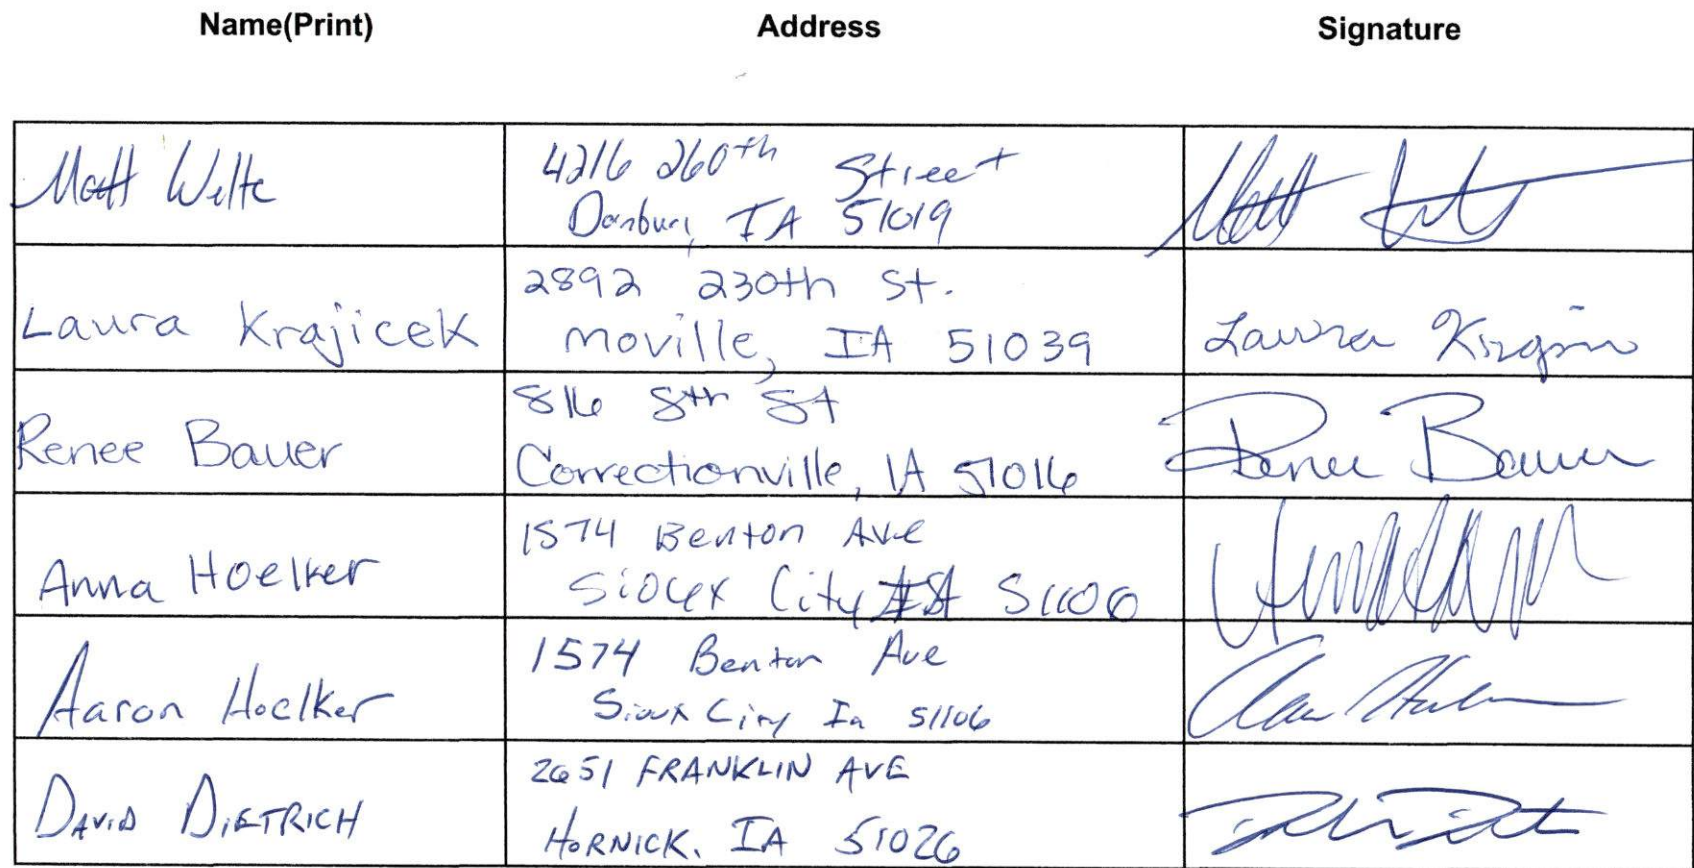 Name(Print) Address Signature
Matt Welte
4216 260th Street
Danbury, IA 51019
Matt
Laura Krajicek
2892 230th St.
Moville, IA 51039
Laura
Renee Bauer
816 8th St
Correctionville, IA 51016
Renee Bauer
Anna Hoelker
1574 Benton Ave
Sioux City IA 51106
Aaron Hoelker
1574 Benton Ave
Sioux City Ia 51106
DAVID DIETRICH
2651 FRANKLIN AVE
HORNICK, IA 51026